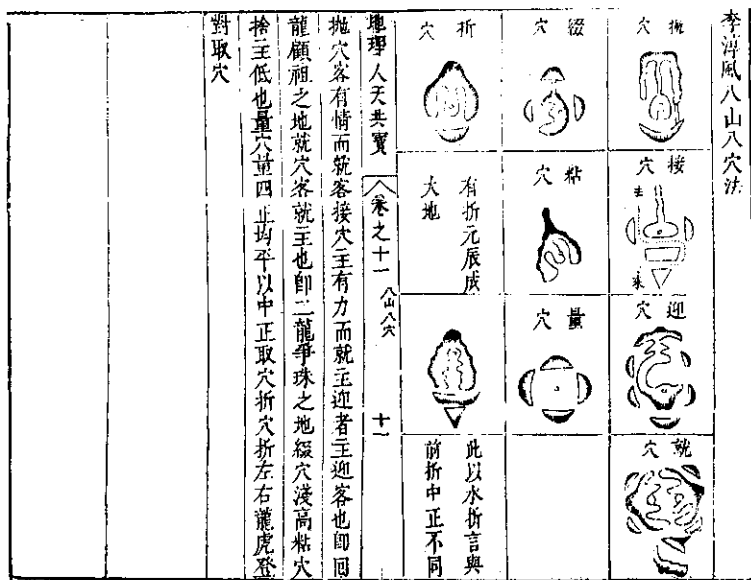 李淳風八山八穴法
拋穴
接穴
去
來
迎穴
就穴
綴穴
粘穴
量穴
折穴
有折元辰成
大地
此以水折言與
前折中正不同
地理人天共寶
卷之十一
八山八穴
十一
拋穴客有情而就客接穴主有力而就主迎者主迎客也即回
龍顧祖之地就穴客就主也即二龍爭珠之地綴穴淺高粘穴
捨主低也量穴量四正均平以中正取穴折穴折左右龍虎登
對取穴